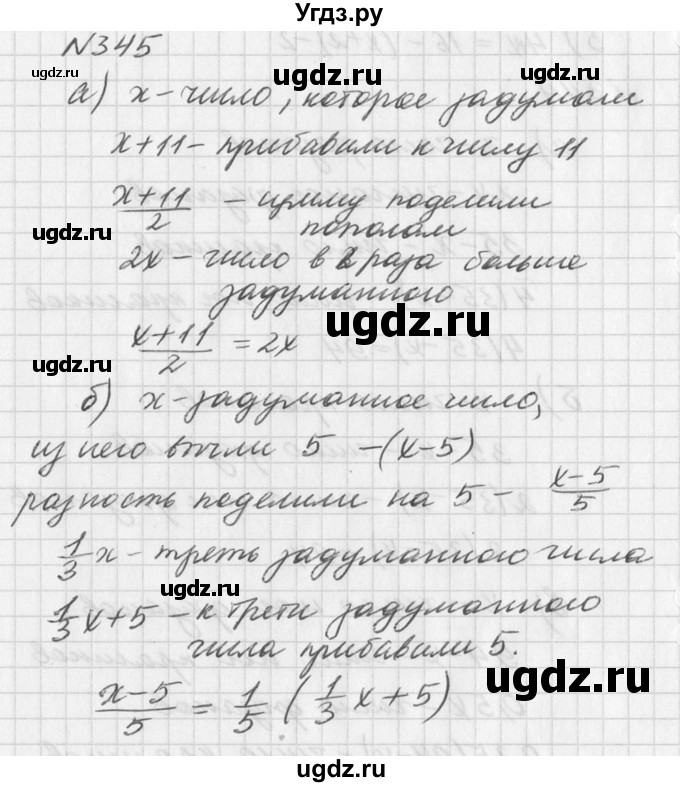 Угдз.ру
N345
а) x – число, которое задумали
x+11 – прибавили к числу 11
(x+11)/2 – сумму поделили
пополам
2x – число в 2 раза больше
задуманного
(x+11)/2 = 2x
б) x – задуманное число,
из него вычли 5 – (x–5)
разность поделили на 5 – (x–5)/5
1/3 x – треть задуманного числа
1/3 x+5 – к трети задуманного
числа прибавили 5.
(x–5)/5 = 1/5 (1/3 x+5)
ugdz.ru
ugdz.ru
ugdz.ru
ugdz.ru
ugdz.ru
ugdz.ru
ugdz.ru
ugdz.ru
ugdz.ru
ugdz.ru